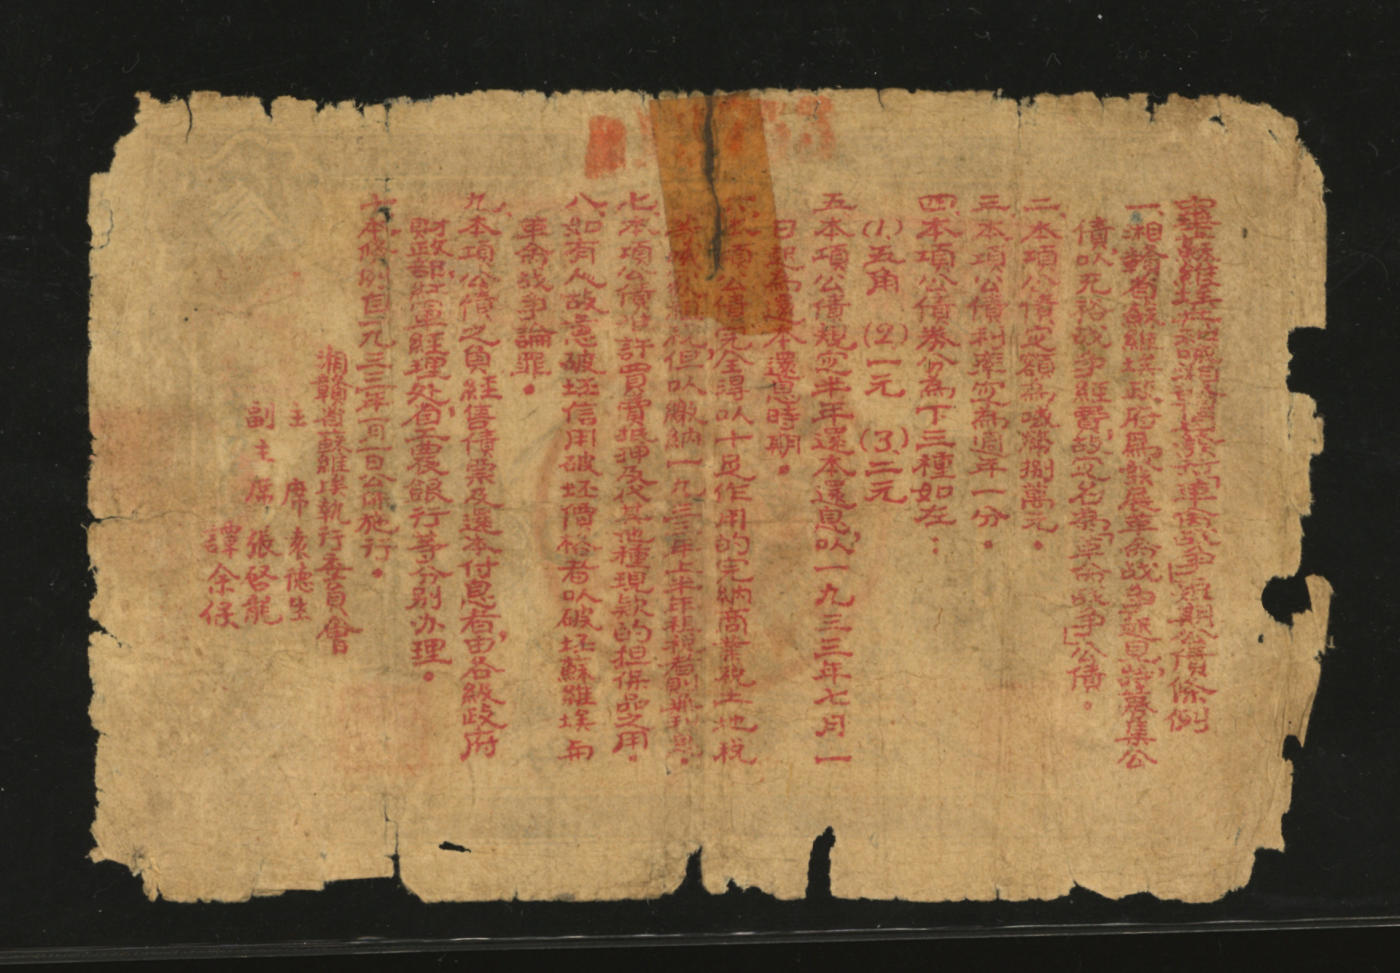 中華蘇維埃共和國湘贛省發行「革命戰爭」短期公債條例
一、湘贛省蘇維埃政府為發展革命战争起見，特募集公
債以充裕战争經費，故定名為「革命战争」公債。
二、本項公債定額為 捌萬元。
三、本項公債利率定為週年一分。
四、本項公債券分為下三種如左：
(1)、五角 (2)一元 (3)、二元
五、本項公債規定半年還本還息，以一九三三年七月一
日起為還本還息時期。
項公債完全得以十足作用的完納商業税土地税
但以繳納一九三三年上半年租税者則無利息。
七、本項公債准許買賣抵押及代其他種現款的担保品之用。
八、如有人故意破坯信用破坯價格者以破坯蘇維埃與
革命战争論罪。
九、本項公債之負經售債票及還本付息者，由各級政府
財政部，紅軍經理处，省工農銀行等分别办理。
十、本條例自一九三三年一月一日公佈施行。
湘贛省蘇維埃執行委員會
主席 袁德生
副主席 張啓龍
譚余保